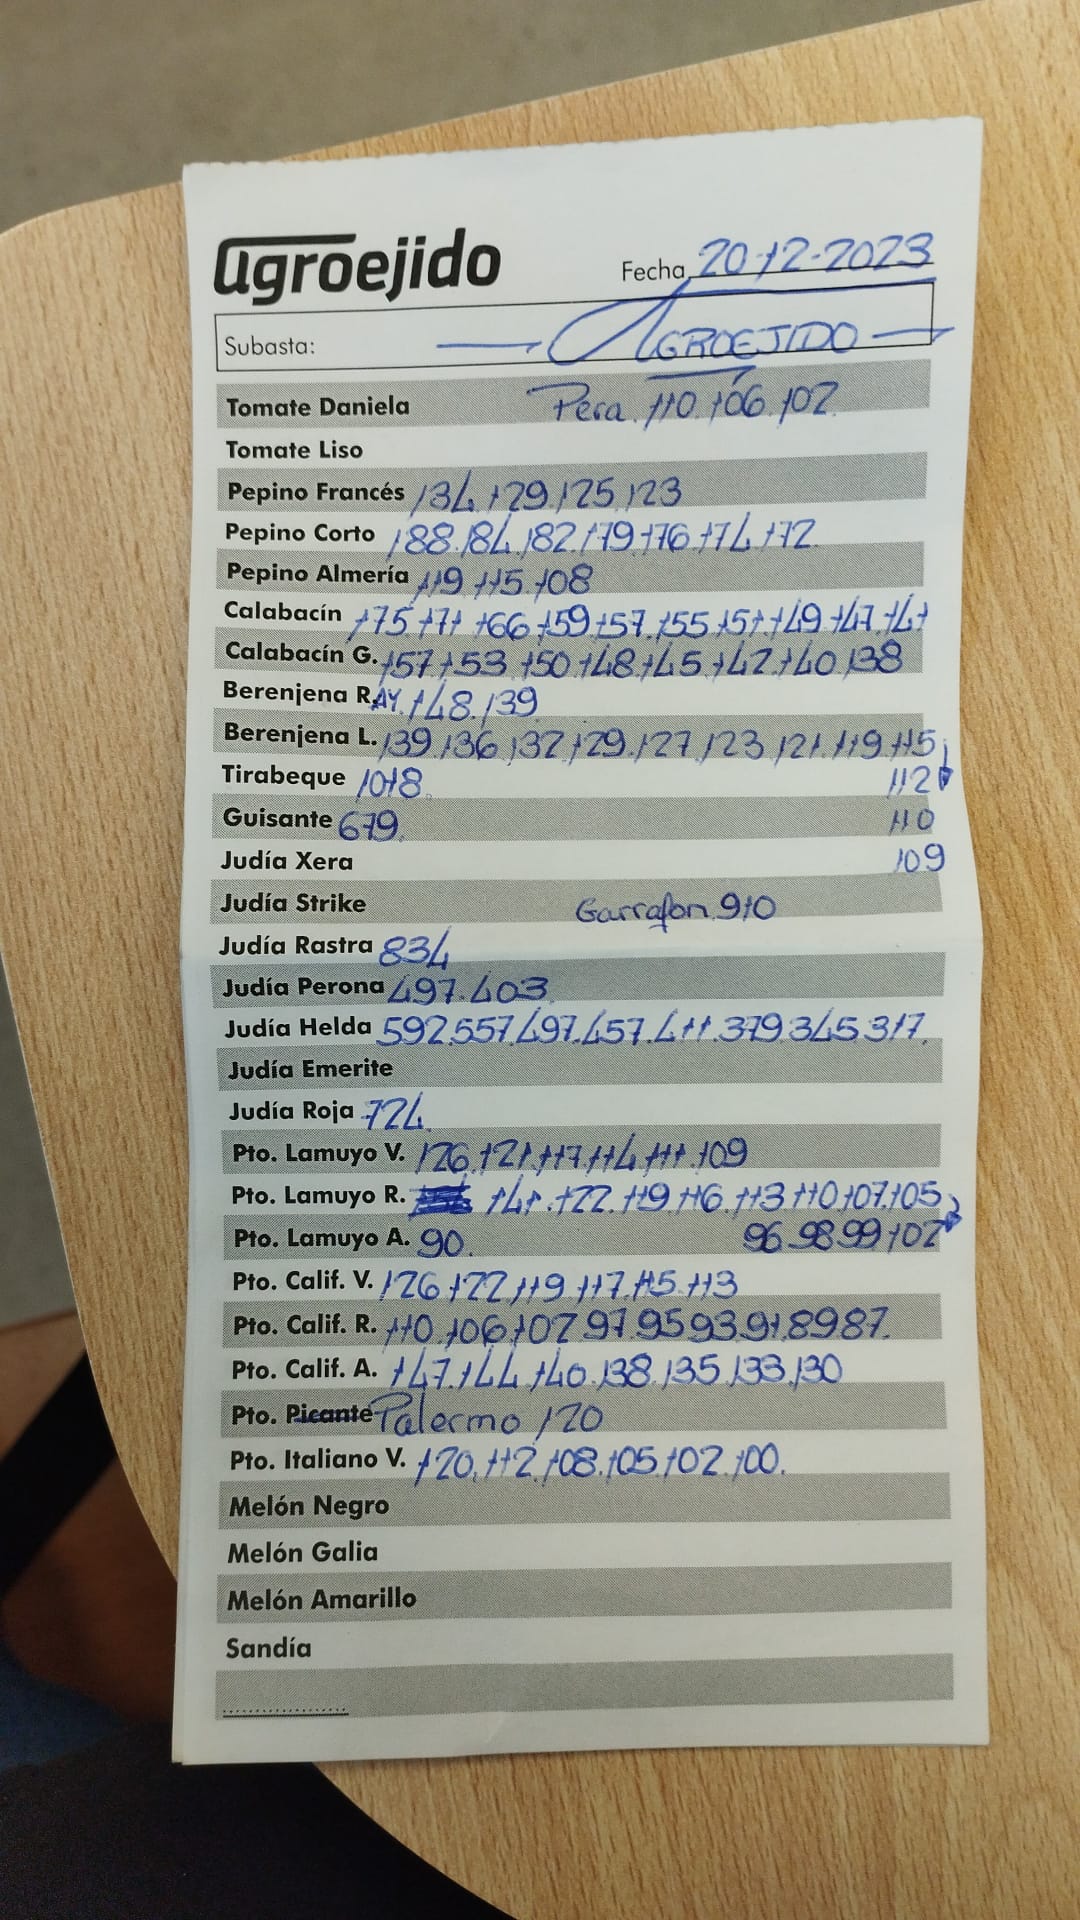 agroejido
Fecha 20-12-2023
Subasta: AGROEJIDO
Tomate Daniela Pera. 110. 106. 102
Tomate Liso
Pepino Francés 134. 129. 125. 123
Pepino Corto 188. 184. 182. 179. 176. 174. 172.
Pepino Almería 119. 115. 108
Calabacín 175. 171. 166. 159. 157. 155. 151. 149. 147. 141
Calabacín G. 157. 153. 150. 148. 145. 142. 140. 138
Berenjena RAY. 148. 139
Berenjena L. 139. 136. 132. 129. 127. 123. 121. 119. 115
Tirabeque 1018. 112
Guisante 679. 110
Judía Xera 109
Judía Strike Garrafon. 910
Judía Rastra 834
Judía Perona 497. 403
Judía Helda 592. 557. 497. 457. 411. 379. 345. 317.
Judía Emerite
Judía Roja 724
Pto. Lamuyo V. 126. 121. 117. 114. 111. 109
Pto. Lamuyo R. 141. 122. 119. 116. 113. 110. 107. 105
Pto. Lamuyo A. 90. 96. 98. 99. 102
Pto. Calif. V. 126. 122. 119. 117. 115. 113
Pto. Calif. R. 110. 106. 102. 97. 95. 93. 91. 89. 87.
Pto. Calif. A. 147. 144. 140. 138. 135. 133. 130
Pto. Picante Palermo 120
Pto. Italiano V. 120. 112. 108. 105. 102. 100.
Melón Negro
Melón Galia
Melón Amarillo
Sandía